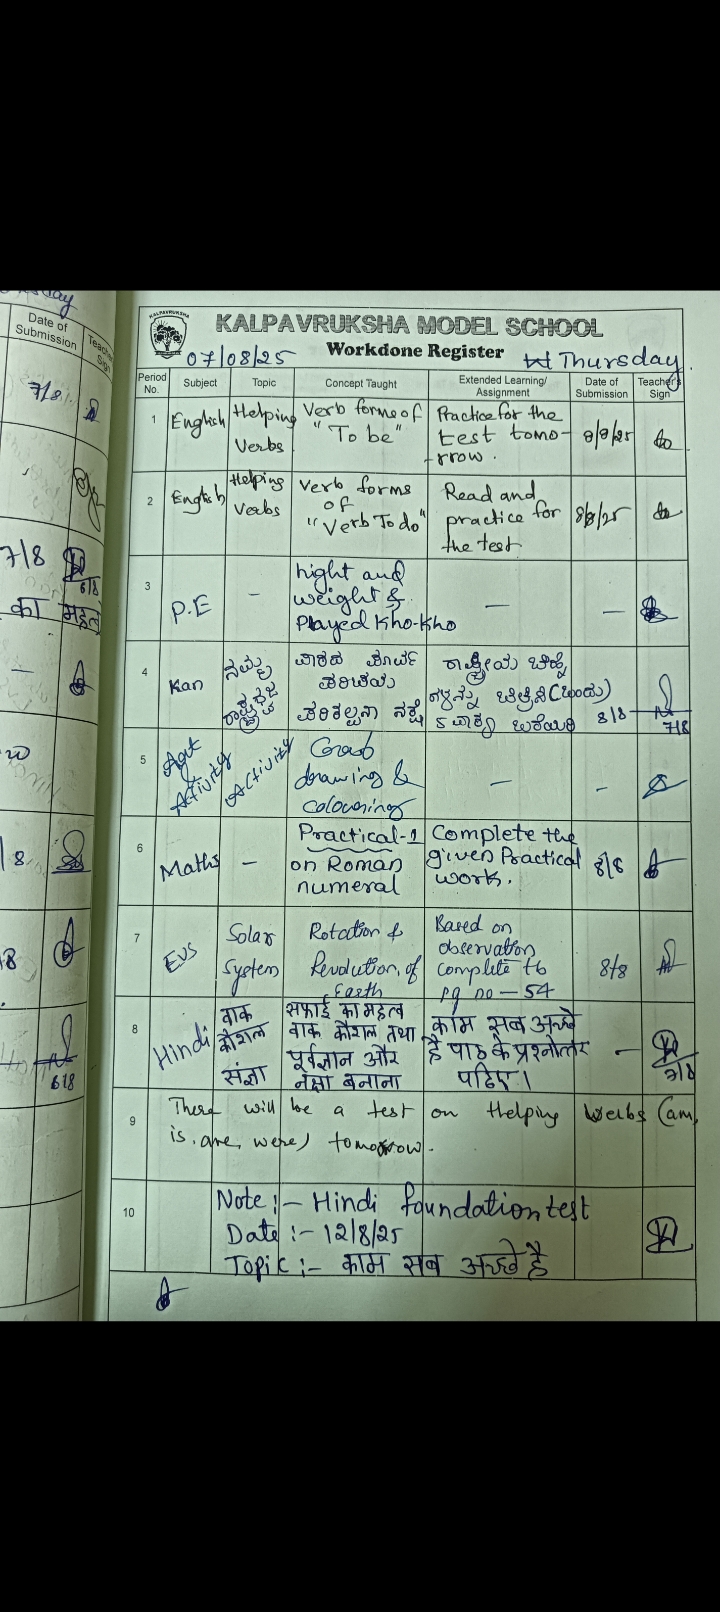 KALPAVRUKSHA
KALPAVRUKSHA MODEL SCHOOL
07/08/25 Workdone Register Thursday
Period No. Subject Topic Concept Taught Extended Learning/ Assignment Date of Submission Teacher's Sign
1 English Helping Verbs Verb forms of "To be" Practice for the test tomo-rrow. 8/8/25
2 English Helping Verbs Verb forms of "Verb To do" Read and practice for the test 8/8/25
3 P.E - hight and weight & Played Kho-Kho — —
4 Kan ನಮ್ಮ ರಾಷ್ಟ್ರಧ್ವಜ ಪಾಠದ ಪೂರ್ವ ಪರಿಚಯ ಪರಿಕಲ್ಪನಾ ನಕ್ಷೆ ರಾಷ್ಟ್ರೀಯ ಚಿಹ್ನೆ ಗಳನ್ನು (ಒಂದು) 5 ವಾಕ್ಯ ಬರೆಯಿರಿ 8/8 7/8
5 Art Activity Activity drawing & colouring — -
6 Maths — Practical-1 on Roman numeral Complete the given Practical work. 8/8
7 EVS Solar System Rotation & Revolution of Earth Based on observation complete tb pg no - 54 8/8
8 Hindi वाक कौशल संज्ञा सफाई का महत्व वाक कौशल तथा पूर्वज्ञान और नक्षा बनाना काम सब अच्छे है पाठ के प्रश्नोत्तर पढिए। - 7/8
9 There will be a test on Helping verbs (am, is, are, were) tomorrow.
10 Note:- Hindi foundation test
Date :- 12/8/25
Topic :- काम सब अच्छे है
Date of Submission
7/8
7/8 6/8
का महत्
—
/8
6/8